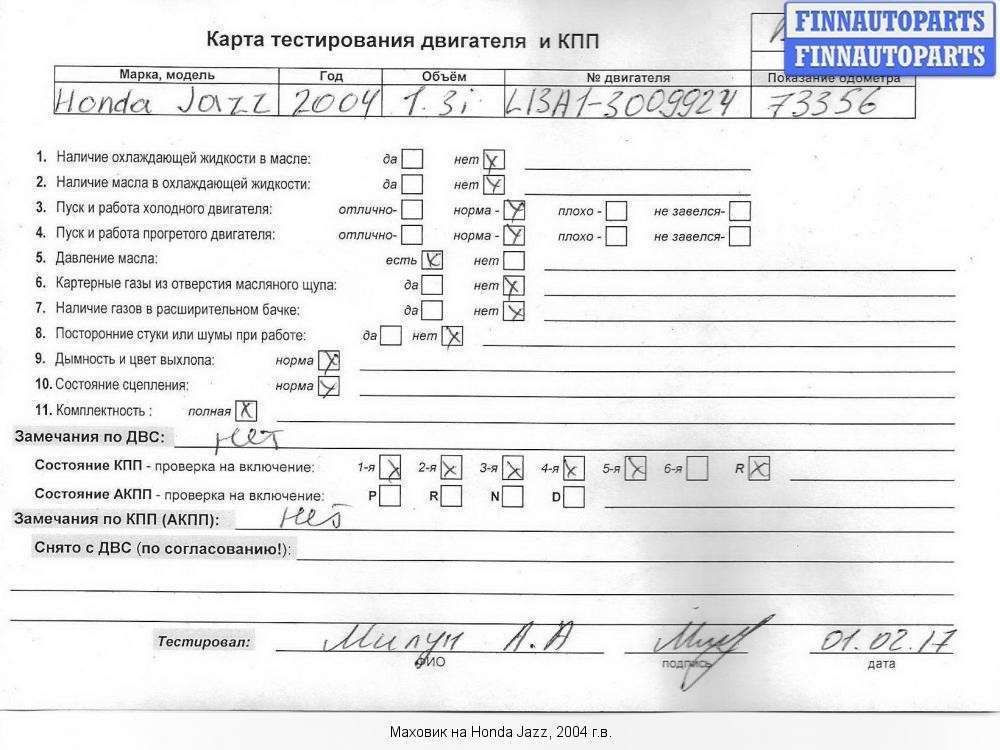 FINNAUTOPARTS
FINNAUTOPARTS
Карта тестирования двигателя и КПП
Марка, модель Год Объём № двигателя Показание одометра
Honda Jazz 2004 1.3i L13A1-3009924 73356
1. Наличие охлаждающей жидкости в масле: да нет x
2. Наличие масла в охлаждающей жидкости: да нет x
3. Пуск и работа холодного двигателя: отлично- норма - x плохо - не завелся-
4. Пуск и работа прогретого двигателя: отлично- норма - x плохо - не завелся-
5. Давление масла: есть x нет
6. Картерные газы из отверстия масляного щупа: да нет x
7. Наличие газов в расширительном бачке: да нет x
8. Посторонние стуки или шумы при работе: да нет x
9. Дымность и цвет выхлопа: норма x
10. Состояние сцепления: норма x
11. Комплектность : полная x
Замечания по ДВС: нет
Состояние КПП - проверка на включение: 1-я x 2-я x 3-я x 4-я x 5-я x 6-я R x
Состояние АКПП - проверка на включение: P R N D
Замечания по КПП (АКПП): нет
Снято с ДВС (по согласованию!):
Тестировал: Милун А.А 01.02.17
ФИО подпись дата
Маховик на Honda Jazz, 2004 г.в.